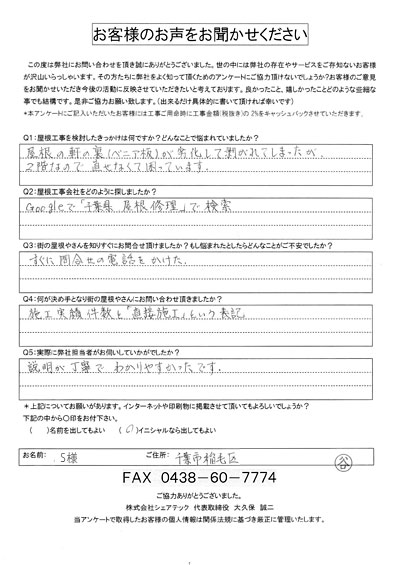 お客様のお声をお聞かせください
この度は弊社にお問い合わせを頂き誠にありがとうございました。世の中には弊社の存在やサービスをご存知ないお客様
が沢山いらっしゃいます。その方たちに弊社をよく知って頂くためのアンケートにご協力頂けないでしょうか?お客様のご意見
をお聞かせいただき今後の活動に反映させていただきたいと考えております。良かったこと、嬉しかったことどのような些細な
事でも結構です。是非ご協力お願い致します。(出来るだけ具体的に書いて頂ければ幸いです)
*本アンケートにご記入いただいたお客様には工事ご用命時に工事金額(税抜き)の 2%をキャッシュバックさせていただきます。
Q1:屋根工事を検討したきっかけは何ですか?どんなことで悩まれていましたか?
屋根の軒の裏(ベニア板)が劣化して剥がれてしまったが、
2階なので直せなくて困っています。
Q2:屋根工事会社をどのように探しましたか?
Googleで「千葉県 屋根修理」で検索
Q3:街の屋根やさんを知りすぐにお問合せ頂けましたか?もし悩まれたとしたらどんなことがご不安でしたか?
すぐに問合せの電話をかけた。
Q4:何が決め手となり街の屋根やさんにお問い合わせ頂きましたか?
施工実績件数と「直接施工」という表記
Q5:実際に弊社担当者がお伺いしていかがでしたか?
説明が丁寧でわかりやすかったです。
*上記についてお願いがあります。インターネットや印刷物に掲載させて頂いてもよろしいでしょうか?
下記の中から〇印をお付下さい。
( )名前を出してもよい (〇)イニシャルなら出してもよい
お名前: S様 ご住所: 千葉市稲毛区
谷
FAX 0438-60-7774
ご協力ありがとうございました。
株式会社シェアテック 代表取締役 大久保 誠二
当アンケートで取得したお客様の個人情報は関係法規に基づき厳正に管理いたします。